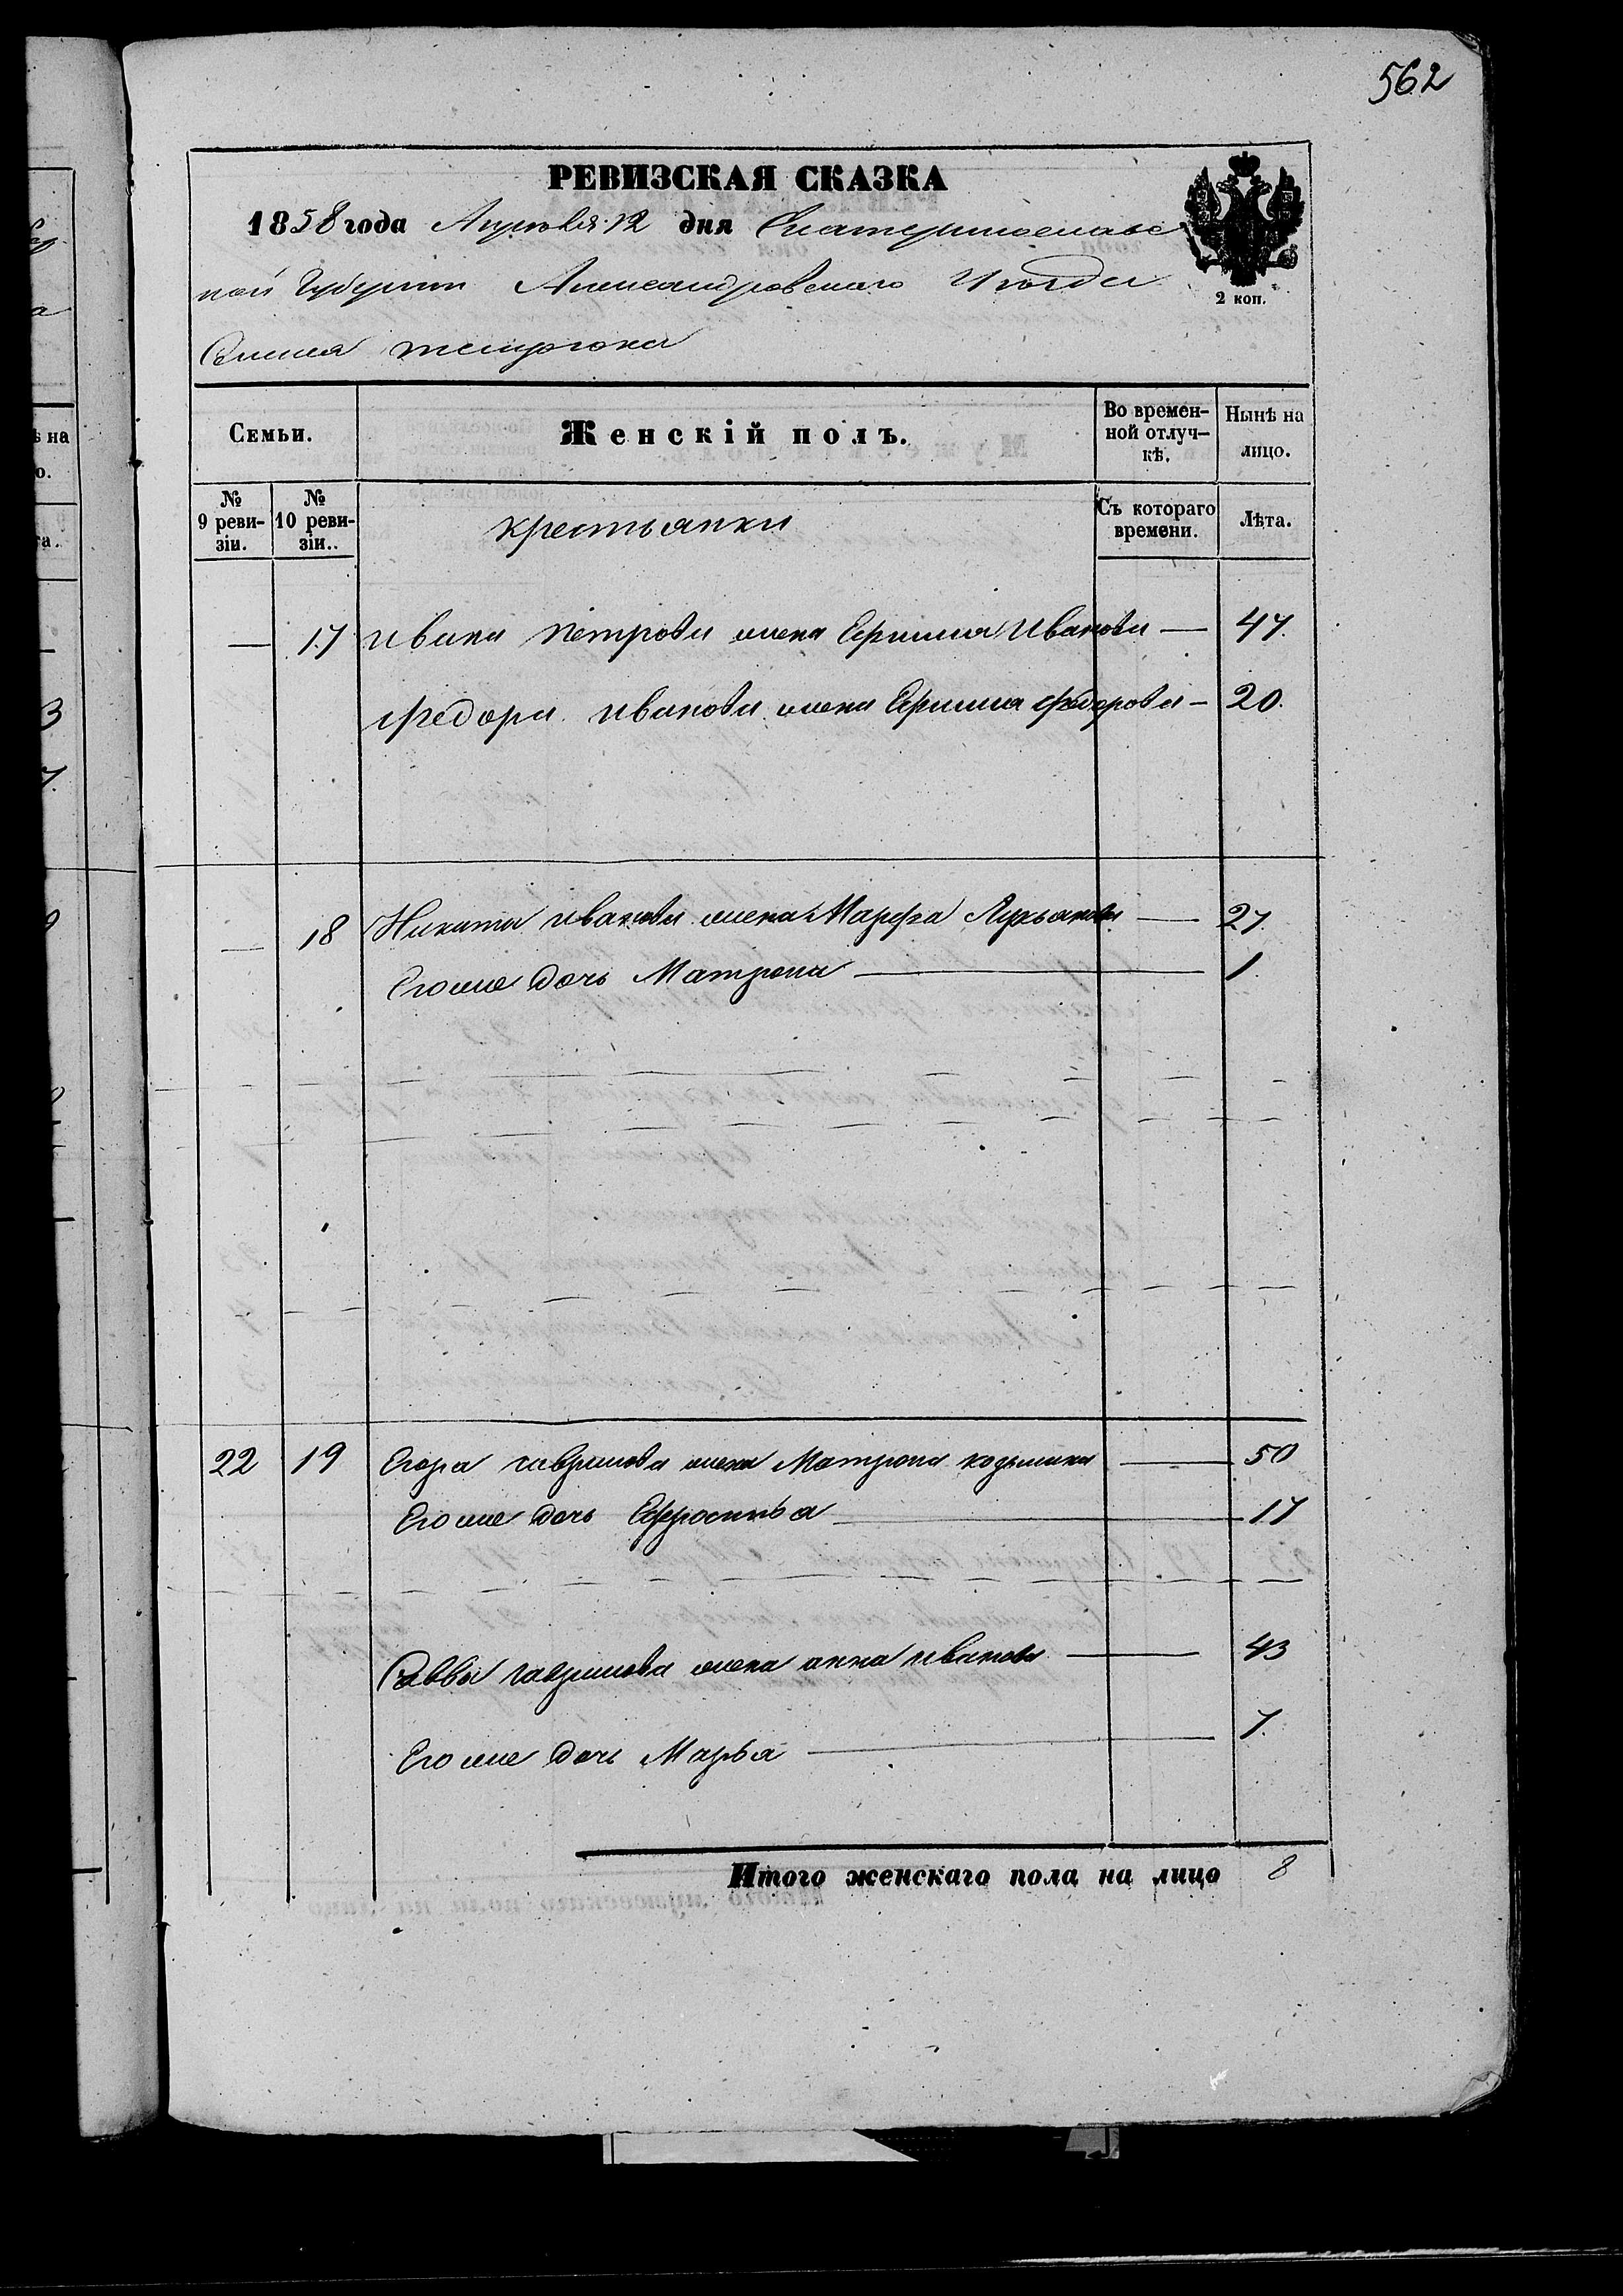 562
РЕВИЗСКАЯ СКАЗКА
1858 года Апреля 12 дня Екатеринославс
кой Губернии Александровскаго Уезда
Селения темрюка
2 коп.
Семьи. Женскій полъ. Во времен-
ной отлуч-
кѣ. Нынѣ на
лицо.
№
9 реви-
зіи. №
10 реви-
зіи.. крестьянки Съ котораго
времени. Лѣта.
— 17 Ивана Петрова жена Ефимия Иванова — 47.
Федора Иванова жена Ефимия Федорова — 20.
— 18 Никиты Иванова жена Марфа Лукьянова — 27.
Его же дочь Матрона — 1.
22 19 Егора гаврилова жена Матрона козьмина — 50
Его же дочь Ефросинья — 17
Саввы гаврилова жена анна иванова — 43
Его же дочь Марья — 7.
Итого женскаго пола на лицо 8